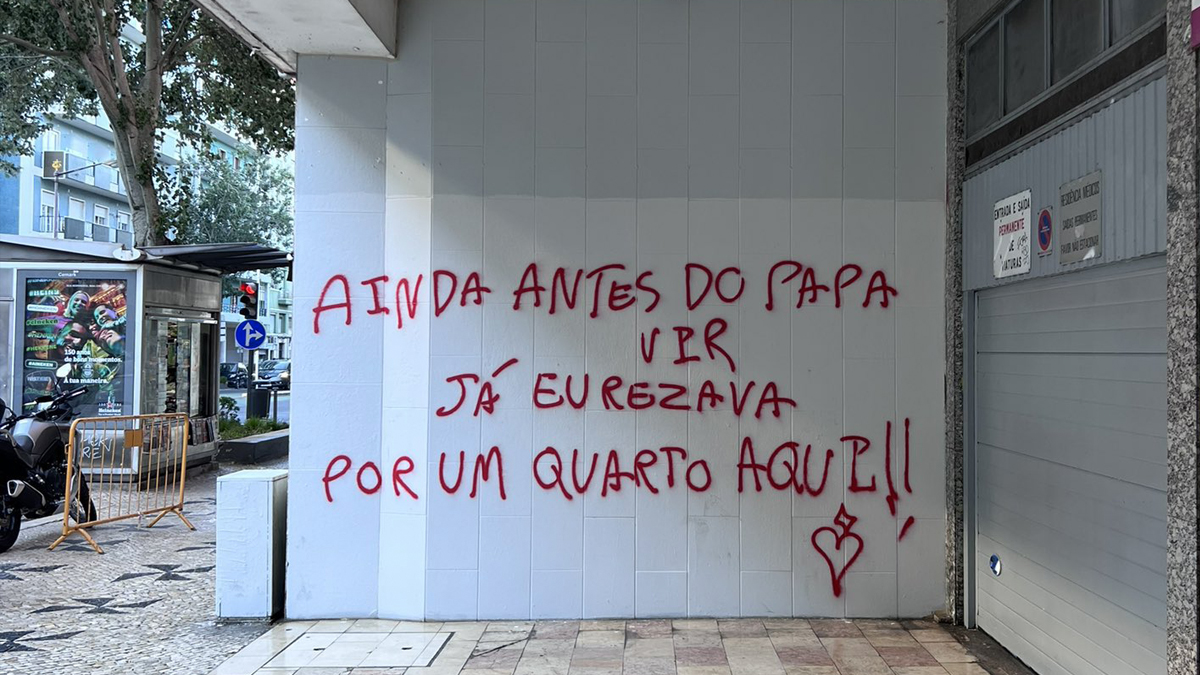 AINDA ANTES DO PAPA
VIR
JÁ EU REZAVA
POR UM QUARTO AQUI!!
ENTRADA E SAÍDA
PERMANENTE
DE
VIATURAS
RESIDÊNCIA MÉDICOS
SAÍDAS PERMANENTES
FAVOR NÃO ESTACIONAR
150 anos
de bons momentos.
À tua maneira.
Heineken